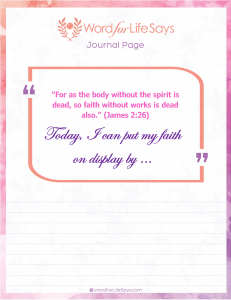 WordforLifeSays
Journal Page
"For as the body without the spirit is
dead, so faith without works is dead
also." (James 2:26)
Today, I can put my faith
on display by ...
WordForLifeSays.com